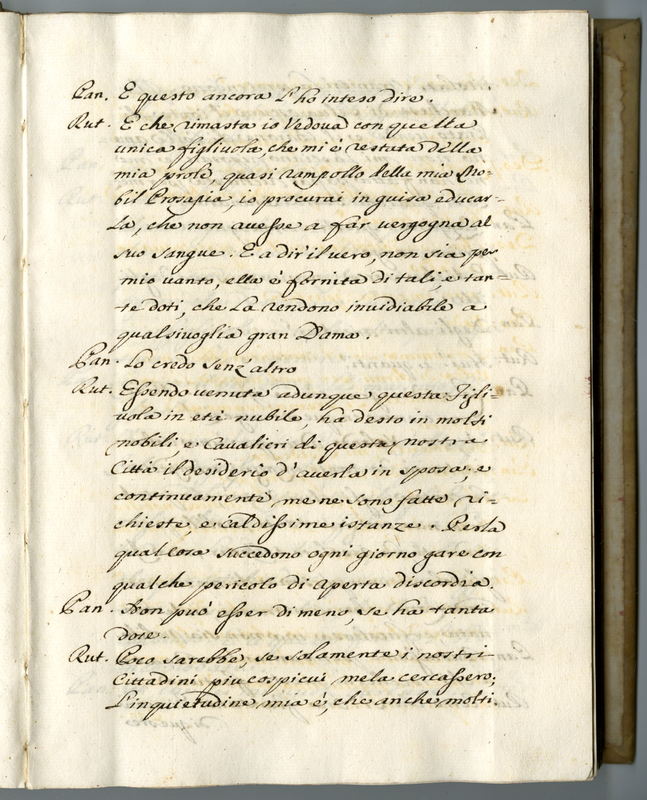 Pan. E questo ancora l'ho inteso dire.
Rut. E che rimasta io Vedova con quella
unica figliuola, che mi è restata della
mia prole, quasi rampollo della mia No=
bil Prosapia, io procurai in guisa educar=
la, che non auesse a far vergogna al
suo sangue. E a dir il vero, non sia per
mio vanto, ella è fornita di tali, e tan=
te doti, che la rendono inuidiabile a
qualsiuoglia gran Dama.
Pan. Lo credo senz'altro
Rut. Essendo venuta adunque questa Figli=
uola in età nubile, ha desto in molti
nobili, e Cavalieri di questa nostra
Città il desiderio d'auerla in sposa; e
continuamente me ne sono fatte ri=
chieste, e caldissime istanze. Per la
qual cosa succedono ogni giorno gare con
qualche pericolo di aperta discordia.
Pan. Non può esser di meno, se ha tanta
dote.
Rut. Poco sarebbe, se solamente i nostri
Cittadini più cospicui me la cercassero;
L'inquietudine mia è, che anche molti